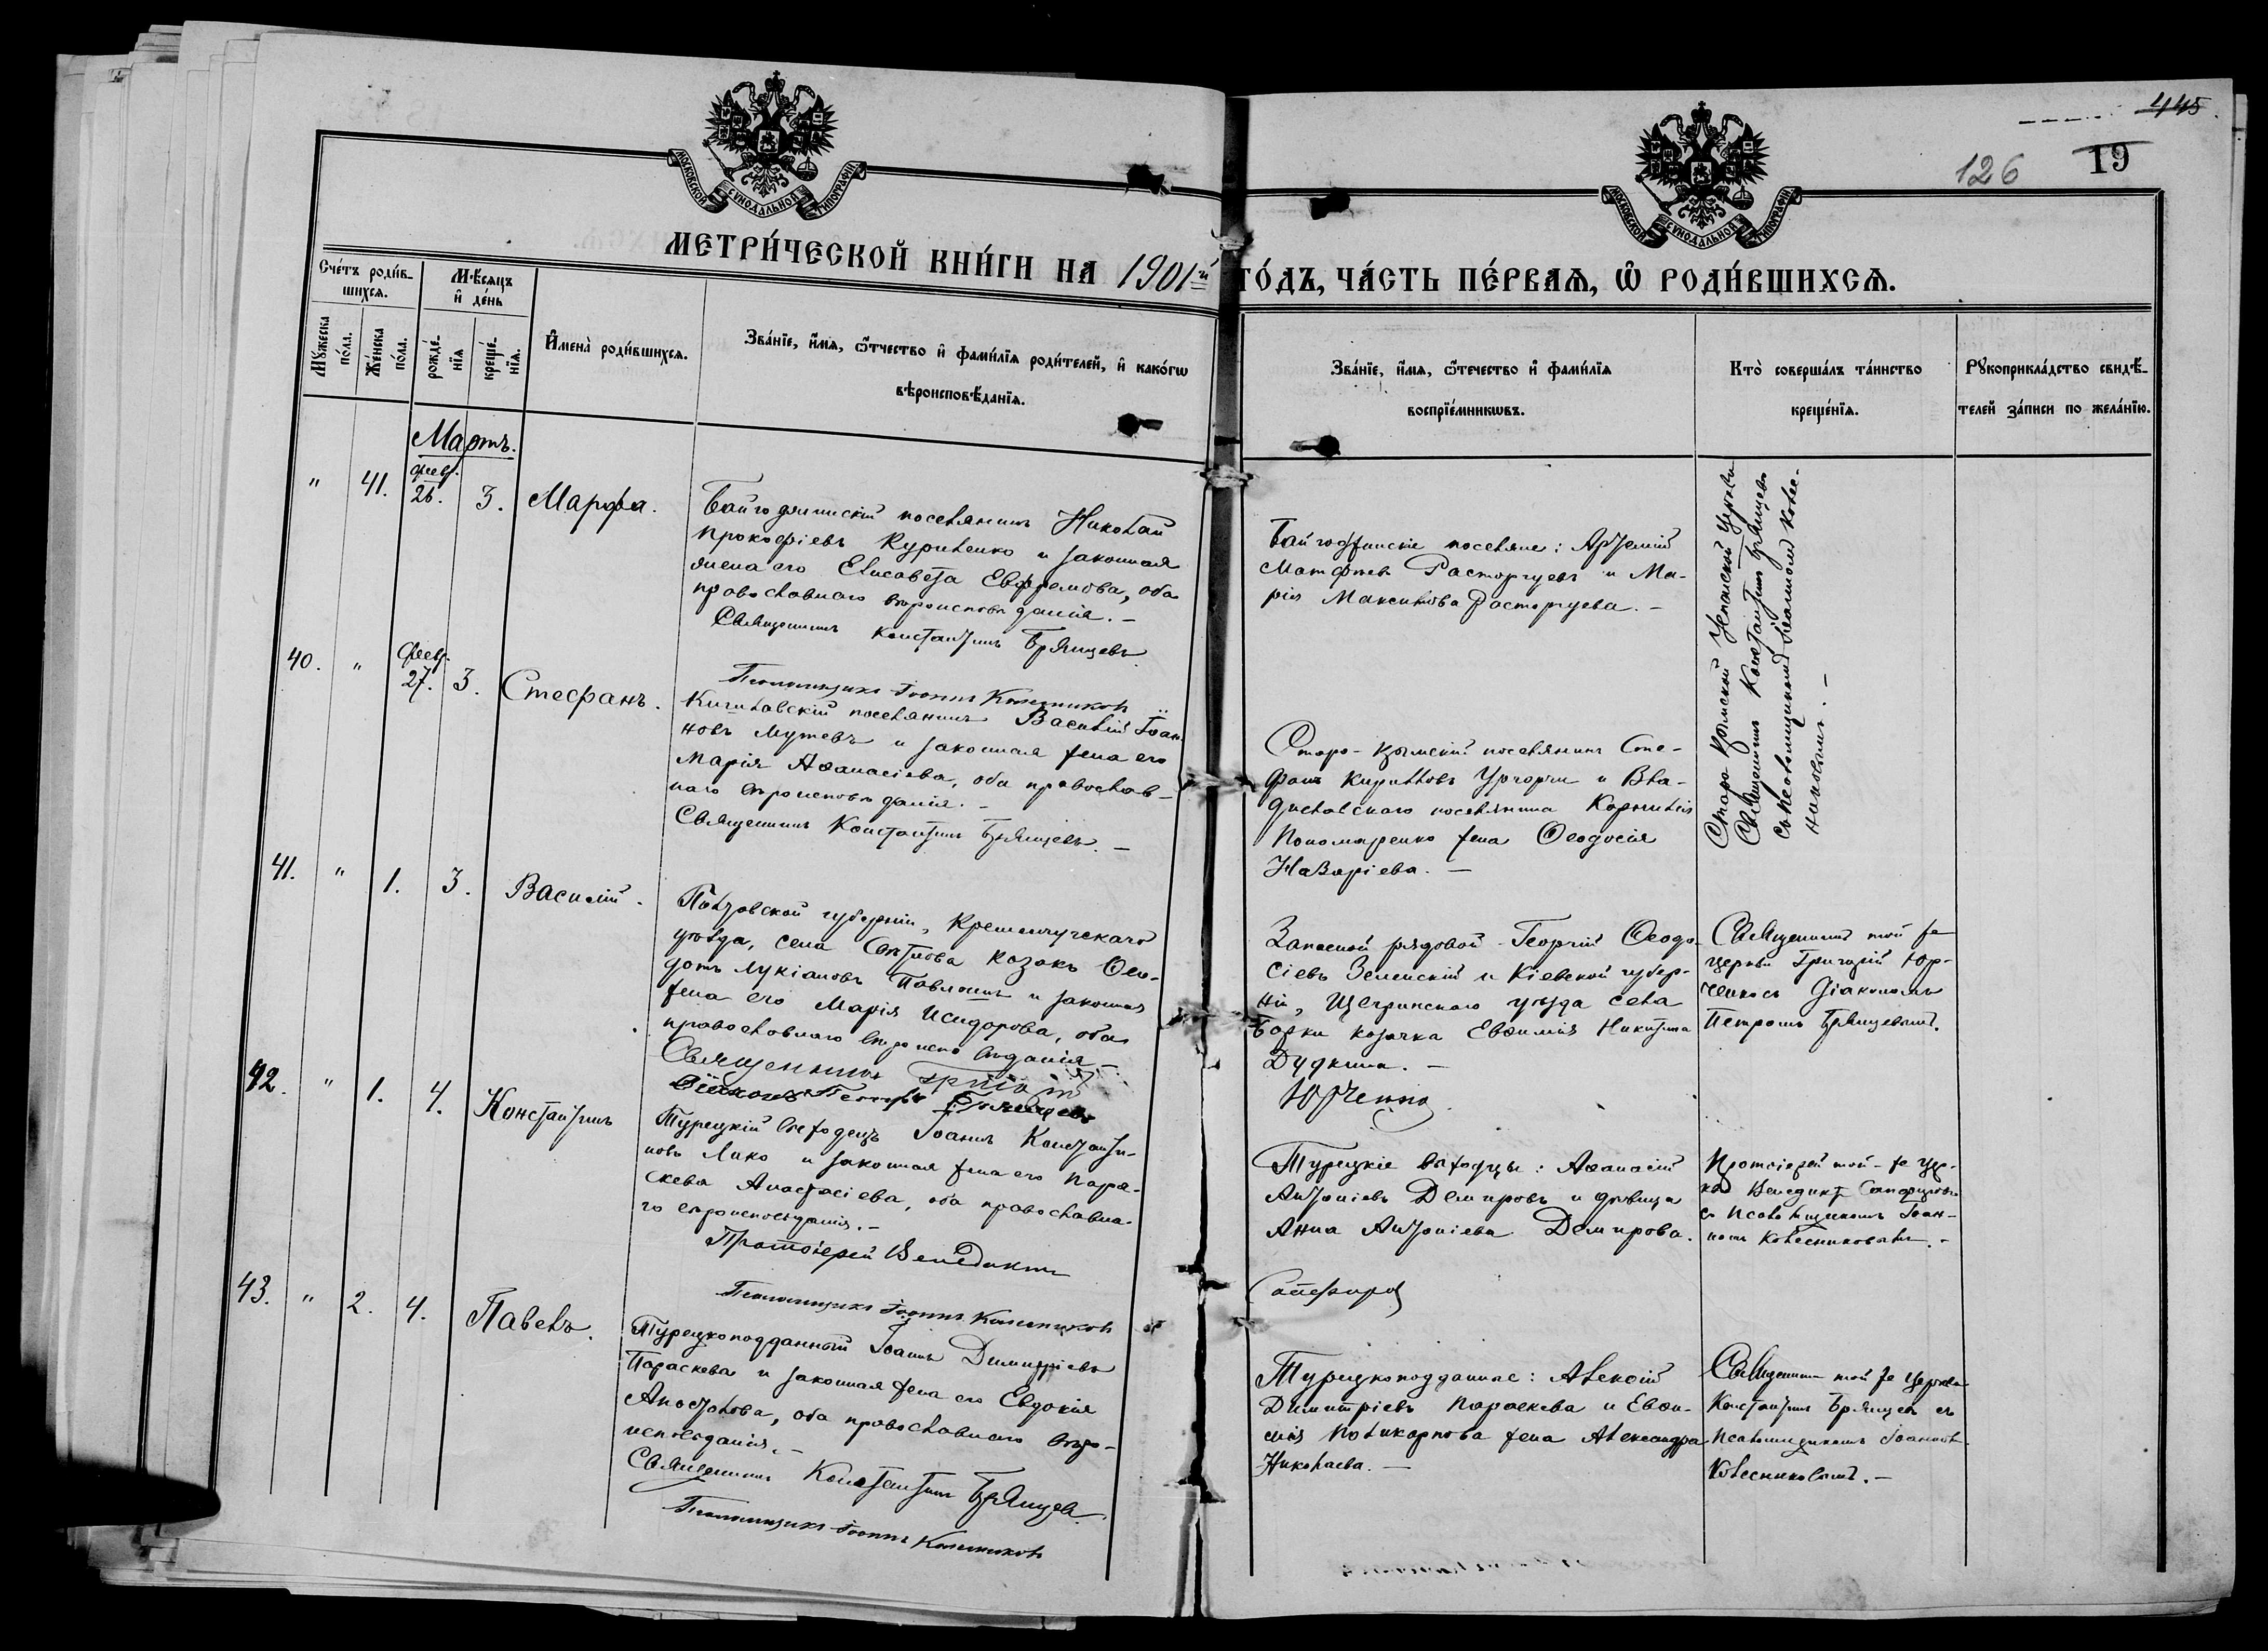 445
126 19
МОСКОВСКОЙ СУНОДАЛЬНОЙ ТИПОГРАФІИ
МОСКОВСКОЙ СУНОДАЛЬНОЙ ТИПОГРАФІИ
МЕТРИ́ЧЕСКОЙ КНИ́ГИ НА 1901й ГО́ДЪ, ЧА́СТЬ ПЕ́РВАѦ, Ѽ РОДИ́ВШИХСѦ.
Сче́тъ роди́в-
шихсѧ.
Мꙋ́жеска по́ла.
Же́нска по́ла.
Мѣ́сѧцъ и҆ де́нь
рожде́-нїѧ
креще́-нїѧ.
И҆мена̀ роди́вшихсѧ.
Зва́нїе, и҆́мѧ, ѻ҆́тчество и҆ фами́лїѧ роди́телей, и҆ како́гѡ
вѣроисповѣ́данїѧ.
Зва́нїе, и҆́мѧ, ѻ҆те́чество и҆ фами́лїѧ
воспрїе́мникѡвъ.
Кто̀ соверша́лъ та́инство
креще́нїѧ.
Рꙋкоприкла́дство свидѣ́-
телей за́писи по жела́нїю.
Мартъ.
" 41. февр. 26. 3. Марфа.
поселянинъ Николай
Прокофіевъ Куриленко и законная
жена его Елисавета Евфремова, оба
православнаго вѣроисповѣданія. –
Священникъ Константинъ Брянцевъ
Псаломщикъ Іоаннъ Колесниковъ
поселяне: Артемій
Матфеевъ Расторгуевъ и Ма-
рія Максимова Расторгуева. –
Старо-Крымской Успенской церкви
Священникъ Константинъ Брянцевъ
съ псаломщикомъ Іоанномъ Колес-
никовымъ. –
40. " Февр. 27. 3. Стефанъ.
поселянинъ Василій Іоан-
новъ и законная жена его
Марія Аѳанасіева, оба православ-
наго вѣроисповѣданія. –
Священникъ Константинъ Брянцевъ. –
Старо-Крымскій поселянинъ Сте-
фанъ Кирилловъ и Вла-
диславскаго поселянина Корнилія
Пономаренко жена Ѳеодосія
Назаріева. –
41. " 1. 3. Василій.
Полтавской губерніи, Кременчугскаго
уѣзда, села козакъ Ѳео-
дотъ Лукіановъ Павлюкъ и законная
жена его Марія Исидорова, оба
православнаго вѣроисповѣданія –
Священникъ Григорій
Діаконъ Петръ Брянцевъ
Запасной рядовой Георгій Ѳеодо-
сіевъ Зеленскій и Кіевской губер-
ніи, уѣзда села
Борки козачка Евѳимія Никитина
Дудкина. –
Юрченко
Священникъ той же
церкви Григорій Юр-
ченко съ Діакономъ
Петромъ Брянцевымъ.
42. " 1. 4. Константинъ
Турецкій выходецъ Іоаннъ Константи-
новъ Лико и законная жена его Пара-
скева Анастасіева, оба православна-
го вѣроисповѣданія. –
Протоіерей Венедиктъ
Псаломщикъ Іоаннъ Колесниковъ
Турецкіе выходцы: Аѳанасій
Антоніевъ Демировъ и дѣвица
Анна Антоніева Демирова.
Протоіерей той-же цер-
кви Венедиктъ
съ псаломщикомъ Іоан-
номъ Колесниковымъ. –
43. " 2. 4. Павелъ.
Турецкоподданный Іоаннъ Димитріевъ
Параскева и законная жена его Евдокія
Апостолова, оба православнаго вѣро-
исповѣданія. –
Священникъ Константинъ Брянцевъ
Псаломщикъ Іоаннъ Колесниковъ
Турецкоподданные: Алексій
Димитріевъ Параскева и Евѳи-
мія Поликарпова жена Александра
Николаева. –
Священникъ той же церкви
Константинъ Брянцевъ съ
псаломщикомъ Іоанномъ
Колесниковымъ. –